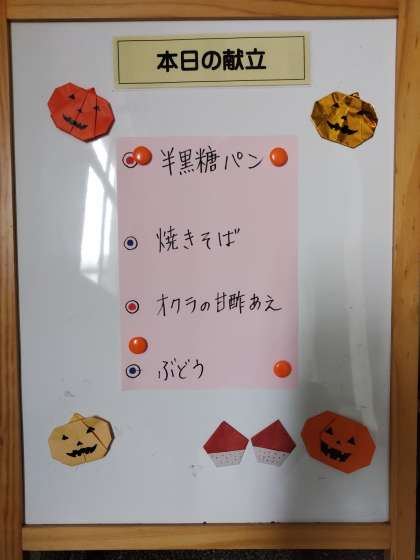 本日の献立
半黒糖パン
焼きそば
オクラの甘酢あえ
ぶどう